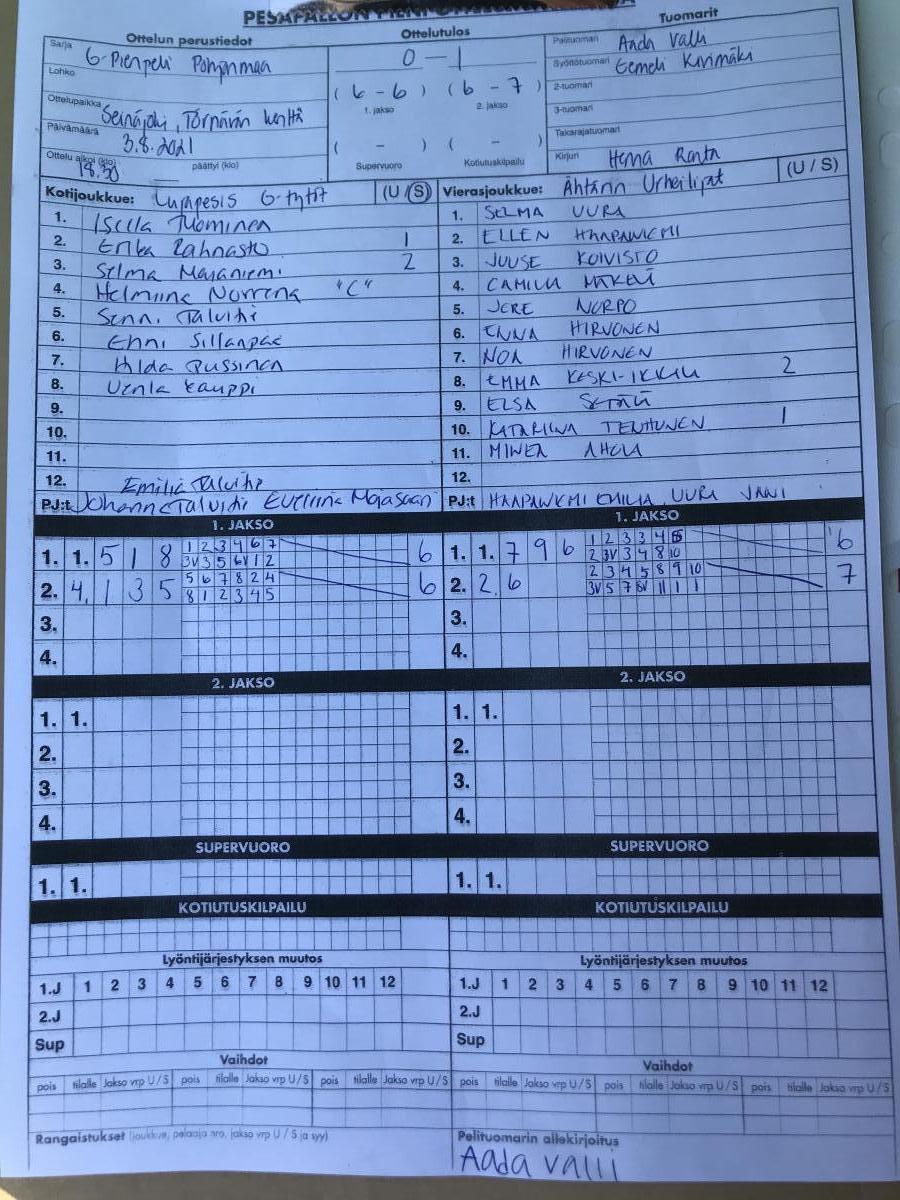 Ottelun perustiedot
Ottelutulos
Tuomarit
Sarja G-Pienpeli Pohjanmaa
Lohko
Ottelupaikka Seinäjoki, Törnävän kenttä
Päivämäärä 3.8.2021
Ottelu alkoi (klo) 18.30 päättyi (klo)
0 - 1
(6 - 6) (6 - 7)
1. jakso 2. jakso
( - ) ( - )
Supervuoro Kotiutuskilpailu
Pelituomari Aada Valli
Syöttötuomari Eemeli Kivimäki
2-tuomari
3-tuomari
Takarajatuomari
Kirjuri Henna Ranta
Kotijoukkue: Lujapesis G-tytöt (U / S)
1. Isella Tuominen
2. Erika Rahnasto 1
3. Selma Majaniemi 2
4. Helmiina Norrena "C"
5. Senni Talvitie
6. Enni Sillanpää
7. Hilda Pussinen
8. Venla Kauppi
9.
10.
11.
12. Emilia Talvitie
PJ:t Johanna Talvitie Eveliina Majasaari
Vierasjoukkue: Ähtärin Urheilijat (U / S)
1. SELMA UURA
2. ELLEN HAAPANIEMI
3. JUUSE KOIVISTO
4. CAMILLA MÄKELÄ
5. JERE NORPO
6. ENNA HIRVONEN
7. NOA HIRVONEN
8. EMMA KESKI-IKKALA 2
9. ELSA
10. KATARIINA TENHUNEN 1
11. MINEA AHOLA
12.
PJ:t HAAPANIEMI EMILIA, UURA JANI
1. JAKSO
1. 1. 5 1 8 1 2 3 4 6 7 6
3V 3 5 6V 1 2
2. 4. 1 3 5 5 6 7 8 2 4 6
8 1 2 3 4 5
3.
4.
1. JAKSO
1. 1. 7 9 6 1 2 3 3 4 6
2 3V 3 4 8 10
2. 2. 6 2 3 4 5 8 9 10 7
3V 5 7 8V 11 1 1
3.
4.
2. JAKSO
1. 1.
2.
3.
4.
2. JAKSO
1. 1.
2.
3.
4.
SUPERVUORO
1. 1.
SUPERVUORO
1. 1.
KOTIUTUSKILPAILU
KOTIUTUSKILPAILU
Lyöntijärjestyksen muutos
1.J 1 2 3 4 5 6 7 8 9 10 11 12
2.J
Sup
Lyöntijärjestyksen muutos
1.J 1 2 3 4 5 6 7 8 9 10 11 12
2.J
Sup
Vaihdot
pois tilalle Jakso vrp U/S pois tilalle Jakso vrp U/S pois tilalle Jakso vrp U/S
Vaihdot
pois tilalle Jakso vrp U/S pois tilalle Jakso vrp U/S pois tilalle Jakso vrp U/S
Rangaistukset (joukkue, pelaaja nro, jakso vrp U / S ja syy)
Pelituomarin allekirjoitus
Aada Valli